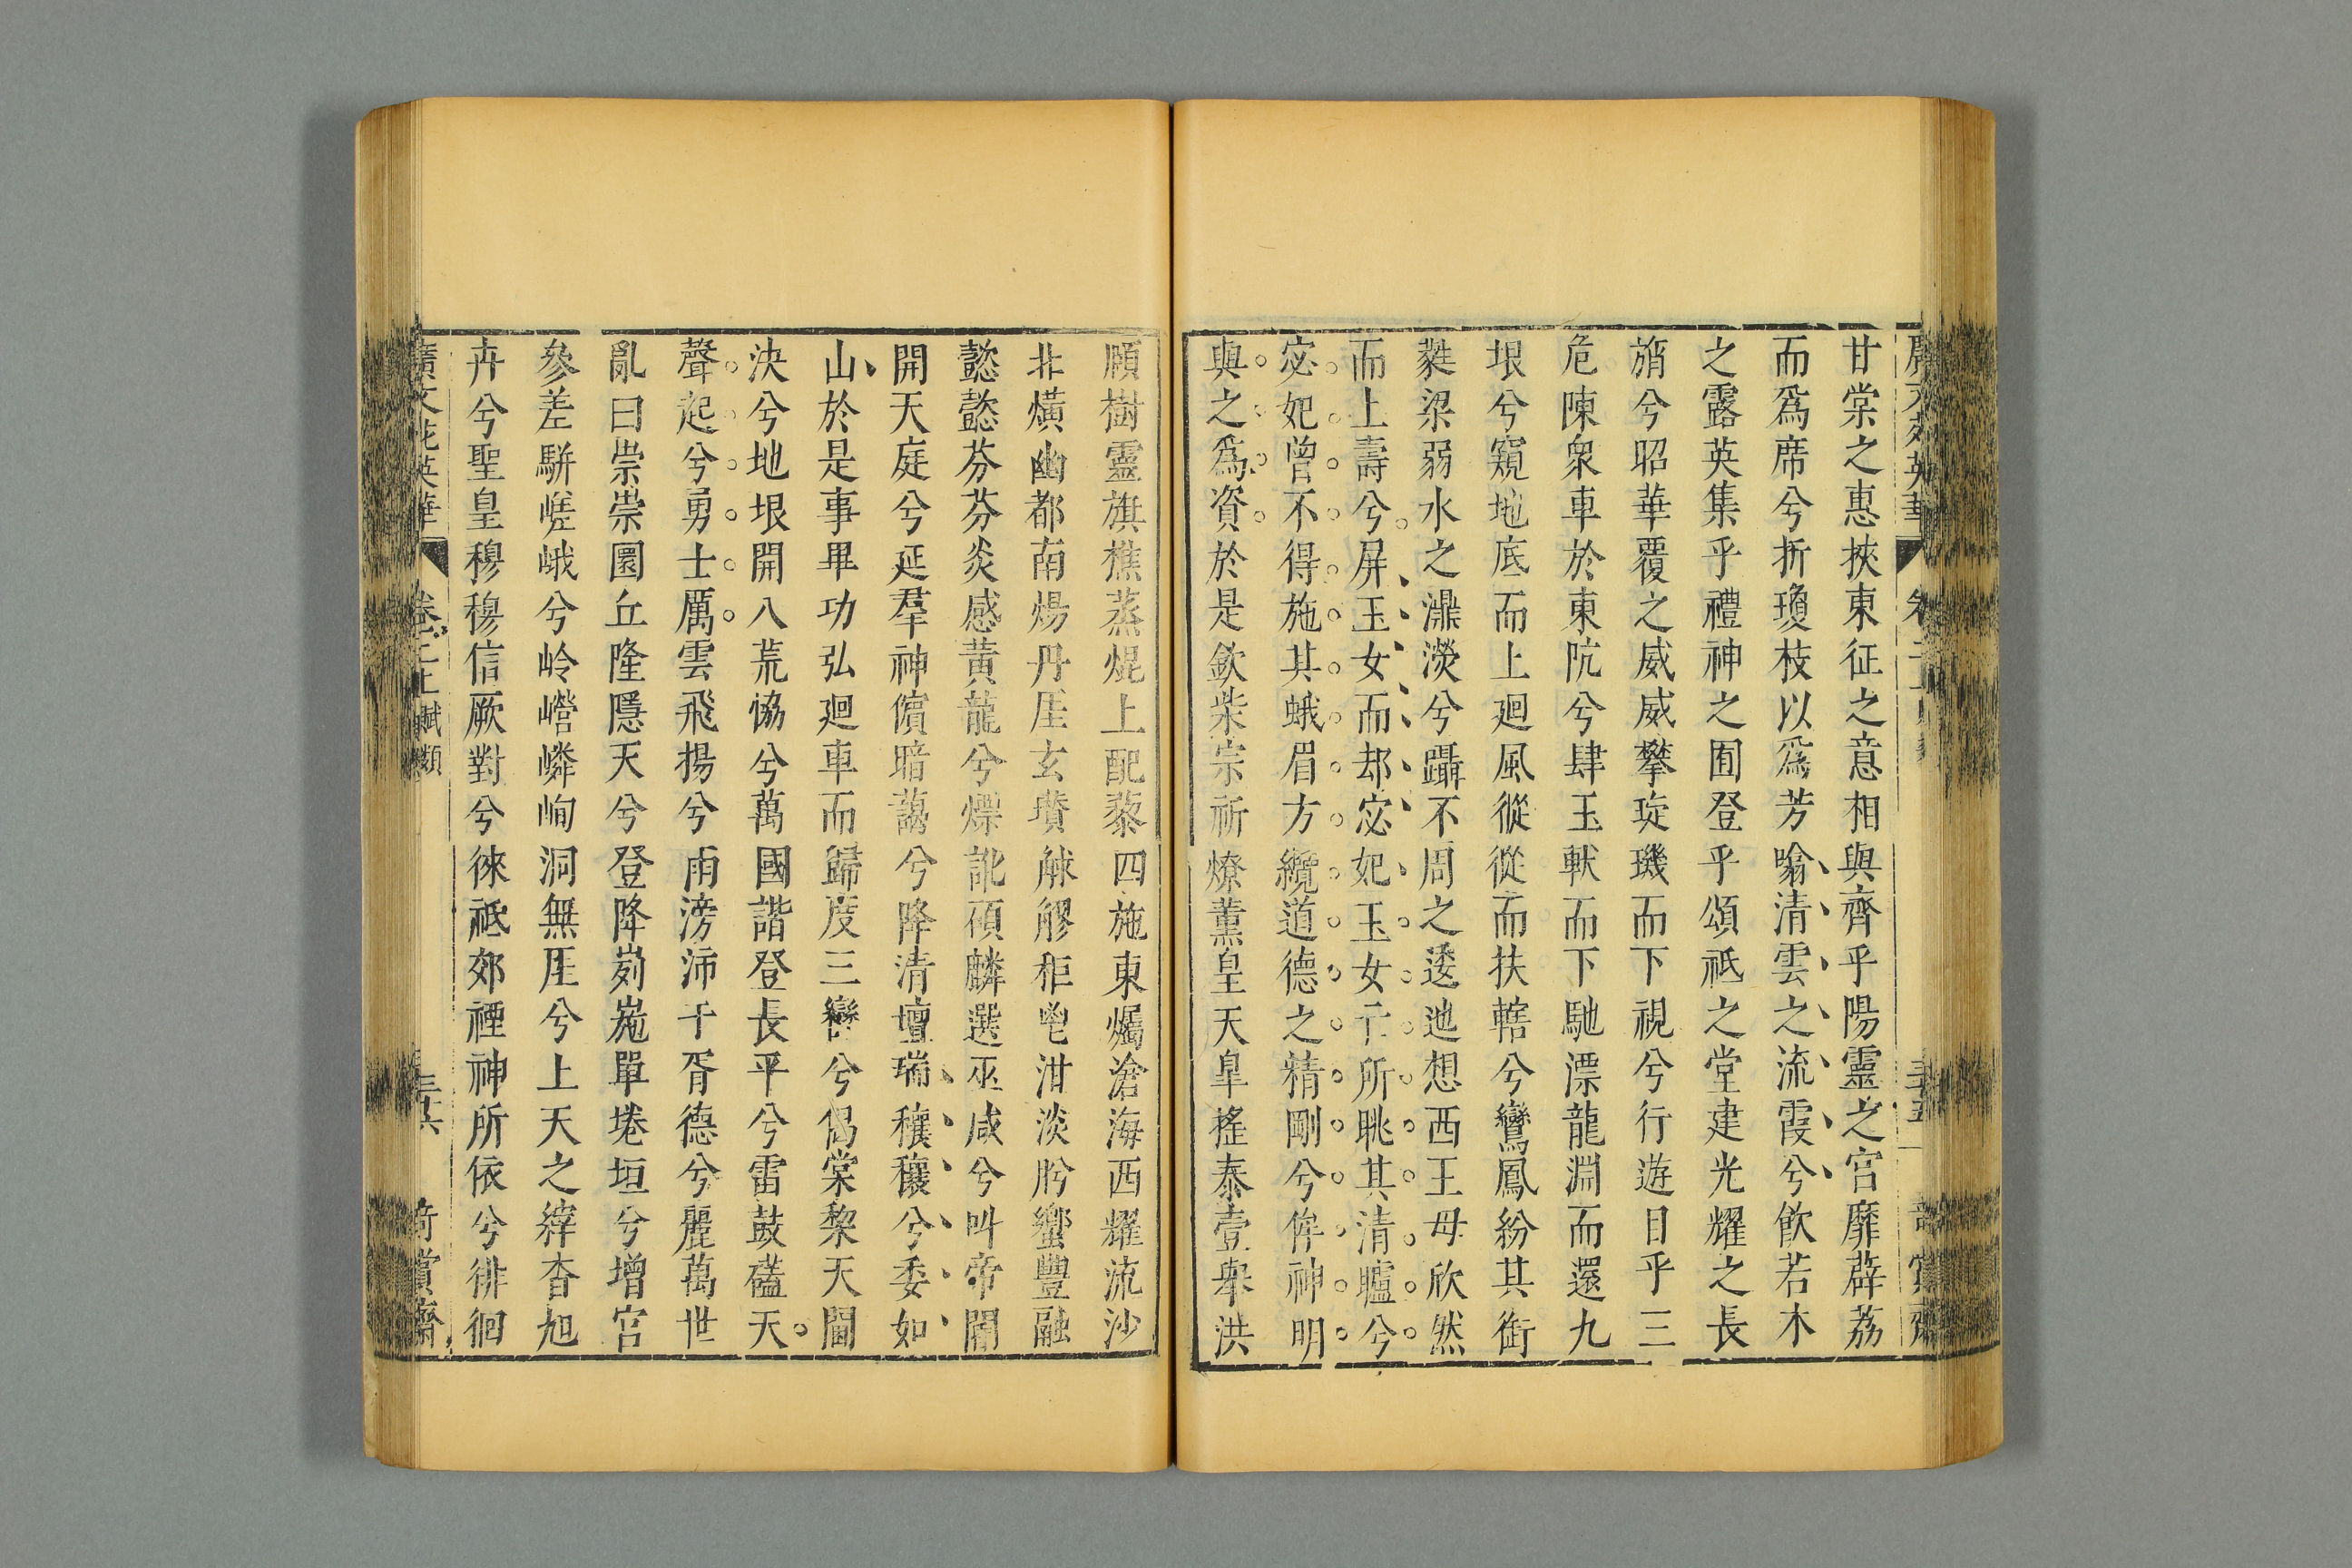 甘棠之惠挾東征之意相與齊乎陽靈之宮靡薜荔
而爲席兮折瓊枝以爲芳噏清雲之流霞兮飲若木
之露英集乎禮神之囿登乎頌祇之堂建光耀之長
旓兮昭華覆之威威攀琁璣而下視兮行遊目乎三
危陳衆車於東阬兮肆玉軑而下馳漂龍淵而還九
垠兮窺地底而上廻風傱傱而扶轄兮鸞鳳紛其銜
蕤梁弱水之濎濙兮躡不周之逶迆想西王母欣然
而上壽兮屏玉女而却宓妃玉女亡所眺其清矑兮
宓妃曾不得施其蛾眉方纜道德之精剛兮侔神明
與之爲資於是欽柴宗祈燎薰皇天皐搖泰壹舉洪
頤樹靈旗樵蒸焜上配藜四施東爥滄海西耀流沙
北爌幽都南煬丹厓玄瓚觩䚧秬鬯泔淡肸蠁豐融
懿懿芬芬炎感黃龍兮熛訛碩麟選巫咸兮叫帝閽
開天庭兮延羣神儐暗藹兮降清壇瑞穰穰兮委如
山於是事畢功弘廻車而歸度三巒兮偈棠黎天閫
決兮地垠開八荒協兮萬國諧登長平兮雷鼓礚天
聲起兮勇士厲雲飛揚兮雨滂沛于胥德兮麗萬世
亂曰崇崇圜丘隆隱天兮登降峛崺單埢垣兮增宮
參差駢嵯峨兮岭巆嶙峋洞無厓兮上天之縡杳旭
卉兮聖皇穆穆信厥對兮徠祗郊禋神所依兮徘徊
廣文苑英華 卷二上 賦類 三六 奇賞齋